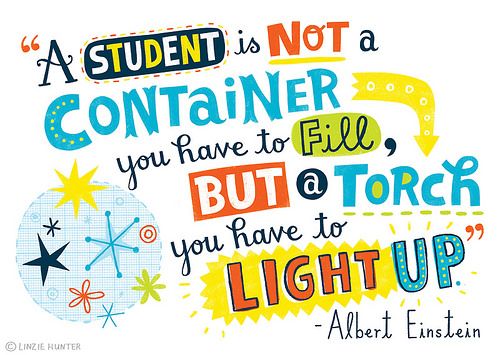 “A STUDENT is NOT a
CONTAiNER
you have to Fill,
BUT a TORCh
you have to
LIGHT UP.”
-Albert Einstein
© LINZIE HUNTER